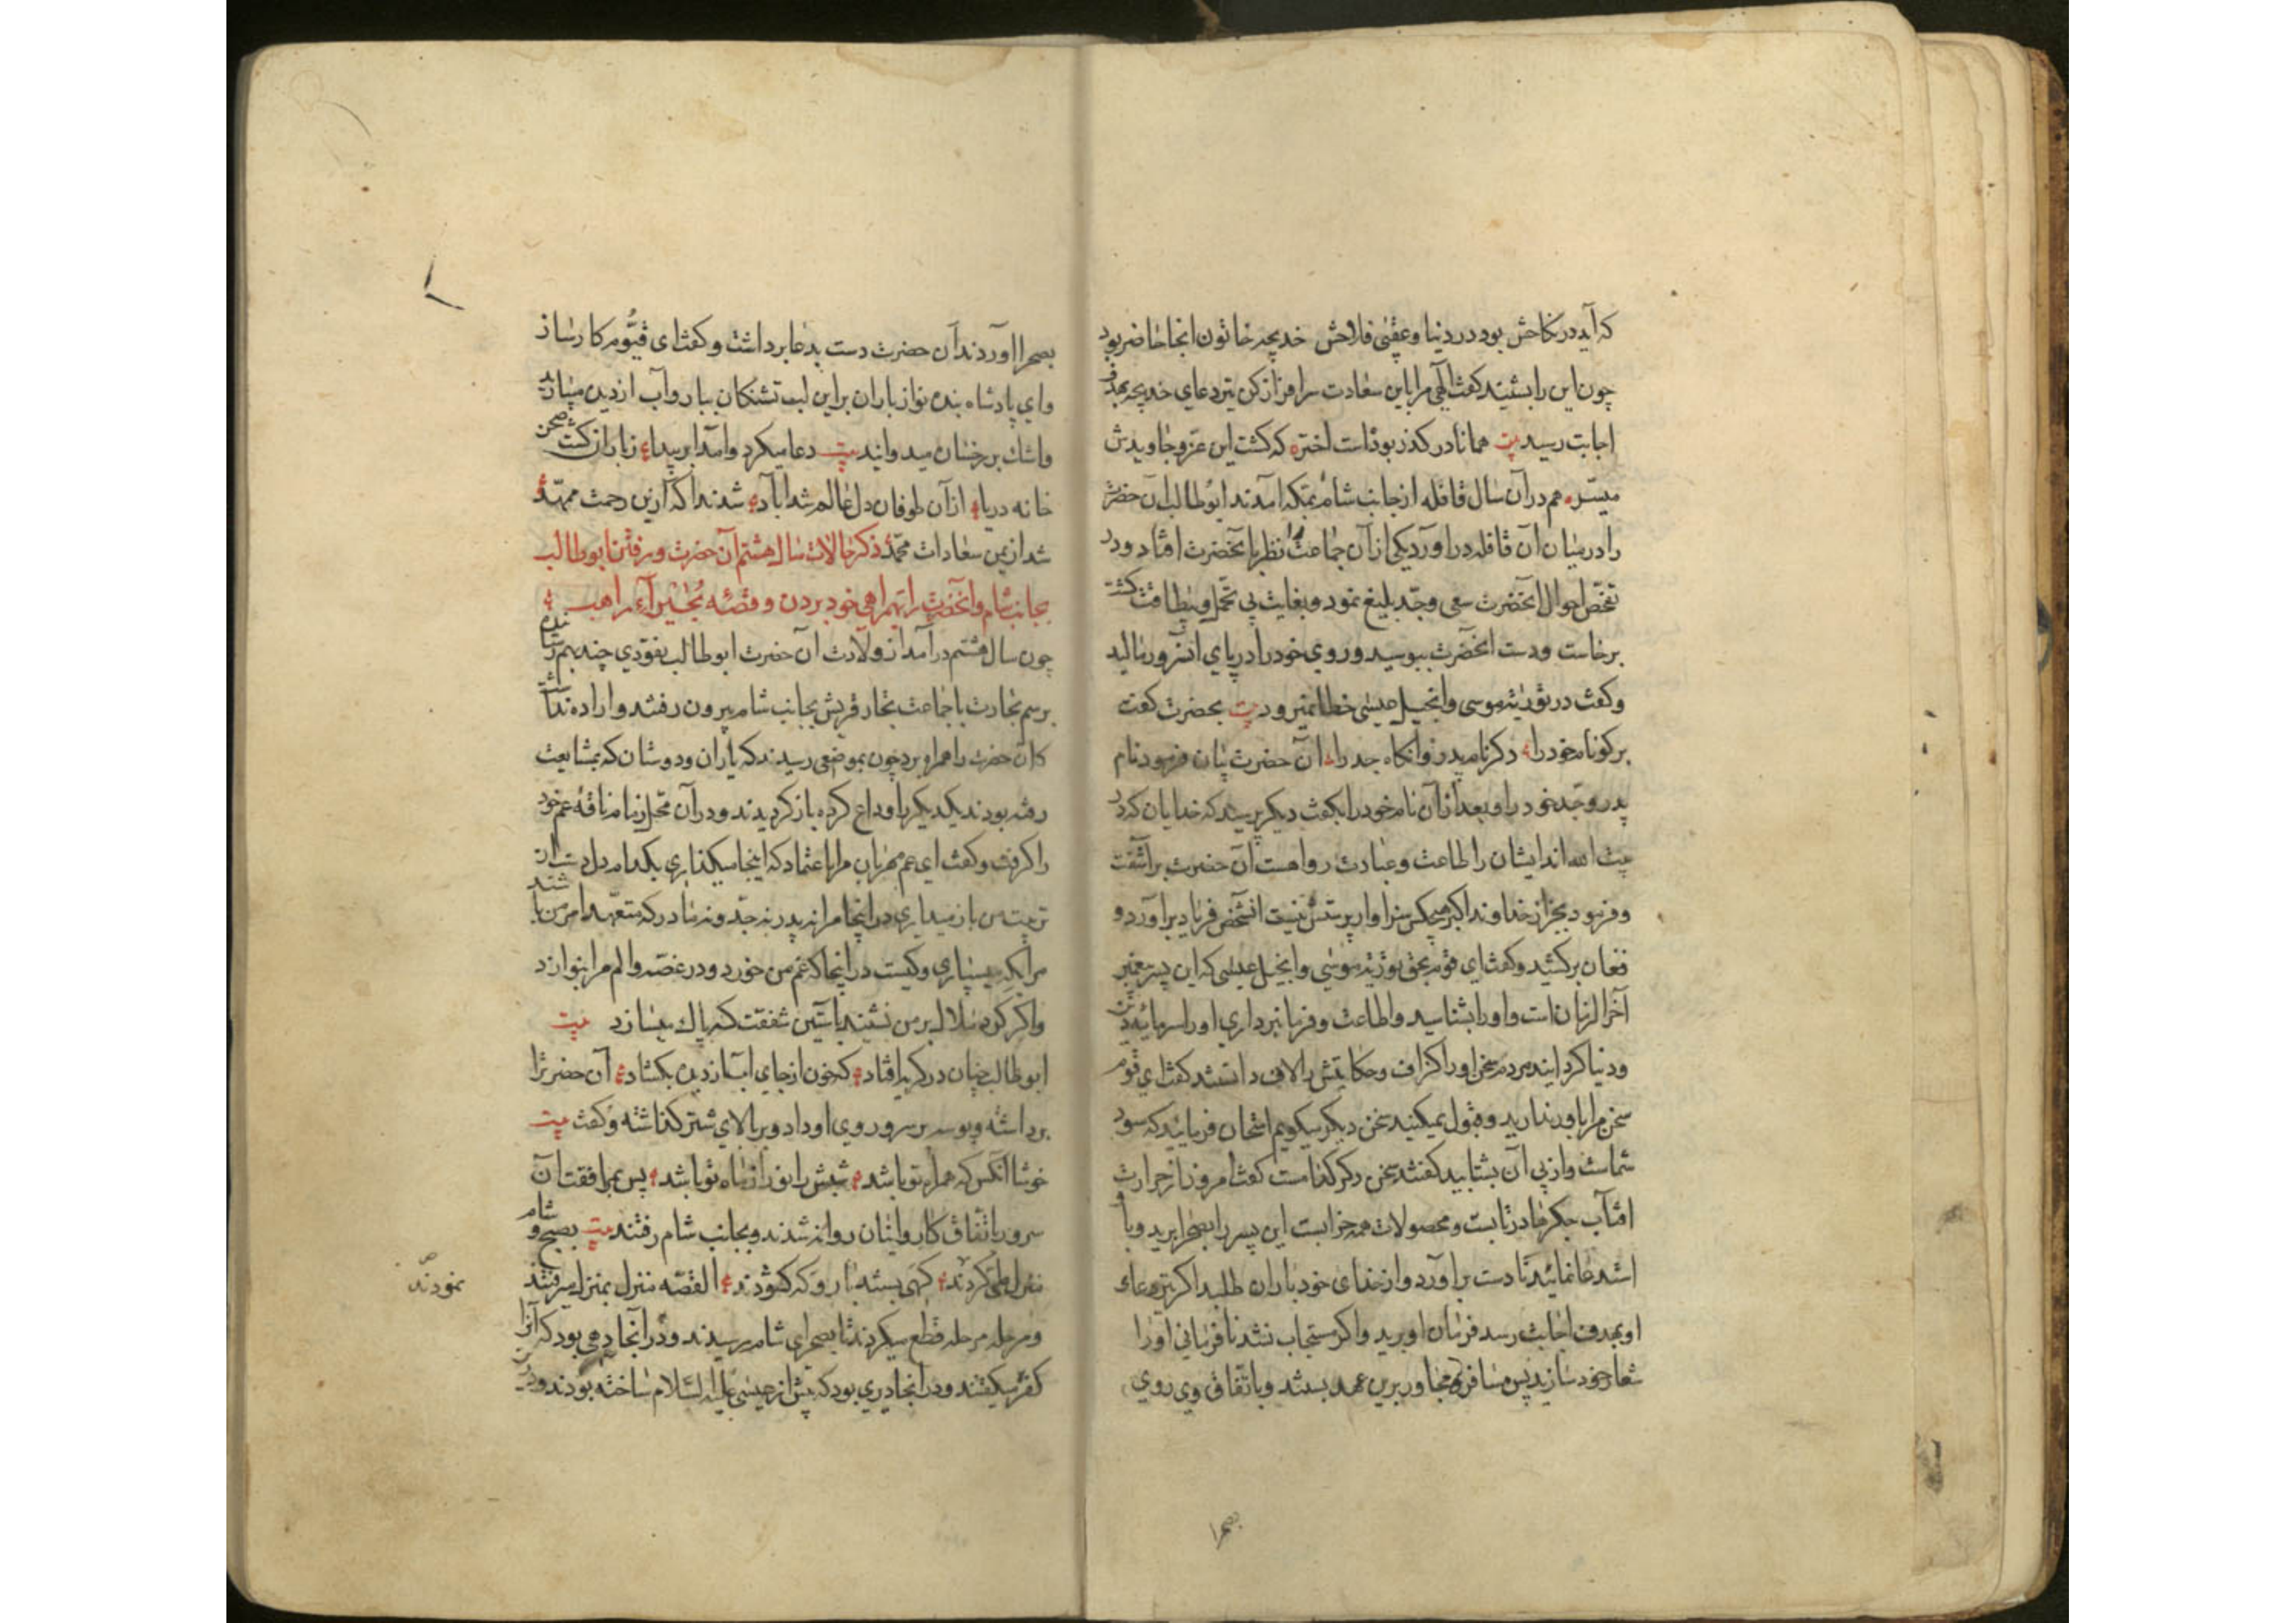 که آید در نکاحش بود در دنیا و عقبی فلاحش خدیجه خاتون انجا حاضر بود
چون این را بشنید کفت الهی مرا باین سعادت سرافراز کن تیر دعای خدیجه بهدف
اجابت رسید بیت همانا در کذر بودست اختر که کشت این عز و جاویدش
میسّر هم در آن سال قافله از جانب شام بمکه آمدند ابوطالب آن حضرت
را در میان آن قافله در آورد یکی از آن جماعت را نظر بآنحضرت افتاد و در
تفحّص احوال آنحضرت سعی و جدّ بلیغ نمود و بغایت بی تحمل و بیطاقت کشته
برخاست و دست آنحضرت ببوسید و روی خود را در پای آنسرور مالید
و کفت در توریة موسی و انجیل عیسی خطا نمیرود بیت بحضرت کفت
برکو نام خود را دکر نام پدر وانکاه جد را آن حضرت بیان فرمود نام
پدر و جدّ خود را و بعد از آن نام خود را بکفت دیکر پرسید که خدایان که در
بیت الله اند ایشان را طاعت و عبادت رواهست آن حضرت برآشفت
و فرمود بجز از خداوند اکبر هیچکس سزاوار پرستش نیست آنشخص فریاد برآورد و
فغان برکشید و کفت ای قوم بحق توریة موسی و انجیل عیسی که این پسر پیغمبر
آخر الزمان است و او را بشناسید و اطاعت و فرمانبرداری او را سرمایه دین
و دنیا کردانید مردم سخن او را کزاف و حکایتش را لاف دانستند کفت ای قوم
سخن مرا باور ندارید و قبول نمیکنید سخن دیکر میکویم امتحان فرمائید که سود
شماست و از پی آن بشتابید کفتند سخن دکر کدامست کفت امروز از حرارت
افتاب جکرها در تابست و محصولات همه خرابست این پسر را بصحرا برید و با
استدعا نمائید تا دست برآورد و از خدای خود باران طلبد اکر تیر دعاء
او بهدف اجابت رسد فرمان او برید و اکر مستجاب نشد نافرمانی او را
شعار خود سازید پس مسافر و مجاور برین عهد بستند و باتفاق وی روی
بصحرا
بصحرا آوردند آن حضرت دست بدعا برداشت و کفت ای قیّوم کارساز
و ای پادشاه بنده نواز باران براین لب تشنکان ببار و آب از دیده میبارید
و اشک بر رخسان میدوانید بیت دعا میکرد و آمد ابر پیدا ز باران کشت صحن
خانه دریا از آن طوفان دل عالم شد آباد شدند آکه ازین رحمت ممهّد
شد از یمن سعادات محمّد ذکر حالات سال هشتم آن حضرت و رفتن ابوطالب
بجانب شام و آنحضرت را بهمراهی خود بردن و قصّه بحیراء راهب
چون سال هشتم در آمد از ولادت آن حضرت ابوطالب نقودی چند بهم رسانده
برسم تجارت با جماعت تجار قریش بجانب شام بیرون رفتند و اراده نداشت
کان حضرت را همراه برد چون بموضعی رسیدند که یاران و دوستان که بمشایعت
رفته بودند یکدیکر را وداع کرده باز کردیدند و در آن محل زمام ناقه عم خود
را کرفت و کفت ای عم مهربان مرا باعتماد که اینجا میکذاری بکدام دل دست از
تربیت من باز میداری در اینجا مرا نه پدر نه جدّ و نه مادر که متعهد امر من باشند
مرا بکه میسپاری و کیست در اینجا که غم من خورد و در غصّه و الم مرا بنوازد
و اکر کرد ملال بر من نشیند بآستین شفقت که پاک میسازد بیت
ابوطالب چنان در کریه افتاد که خون از جای آب از دیده بکشاد آن حضرت را
برداشته و بوسه بر سر و روی او داد و بر بالای شتر کذاشته و کفت بیت
خوشا آنکس که همراه تو باشد شبش را نور از ماه تو باشد پس بمرافقت آن
سرور باتفاق کاروانیان روانه شدند و بجانب شام رفتند بیت بصبح و شام
منزل طی کردند کهی بسته بار و که کشودند القصّه منزل بمنزل میرفتند
نمودند
و مرحله بمرحله قطع میکردند تا بصحرای شام رسیدند و در آنجا دهی بود که آنرا
کفر میکفتند و در آنجا دیری بود که پیش از عیسی علیه السّلام ساخته بودند و در